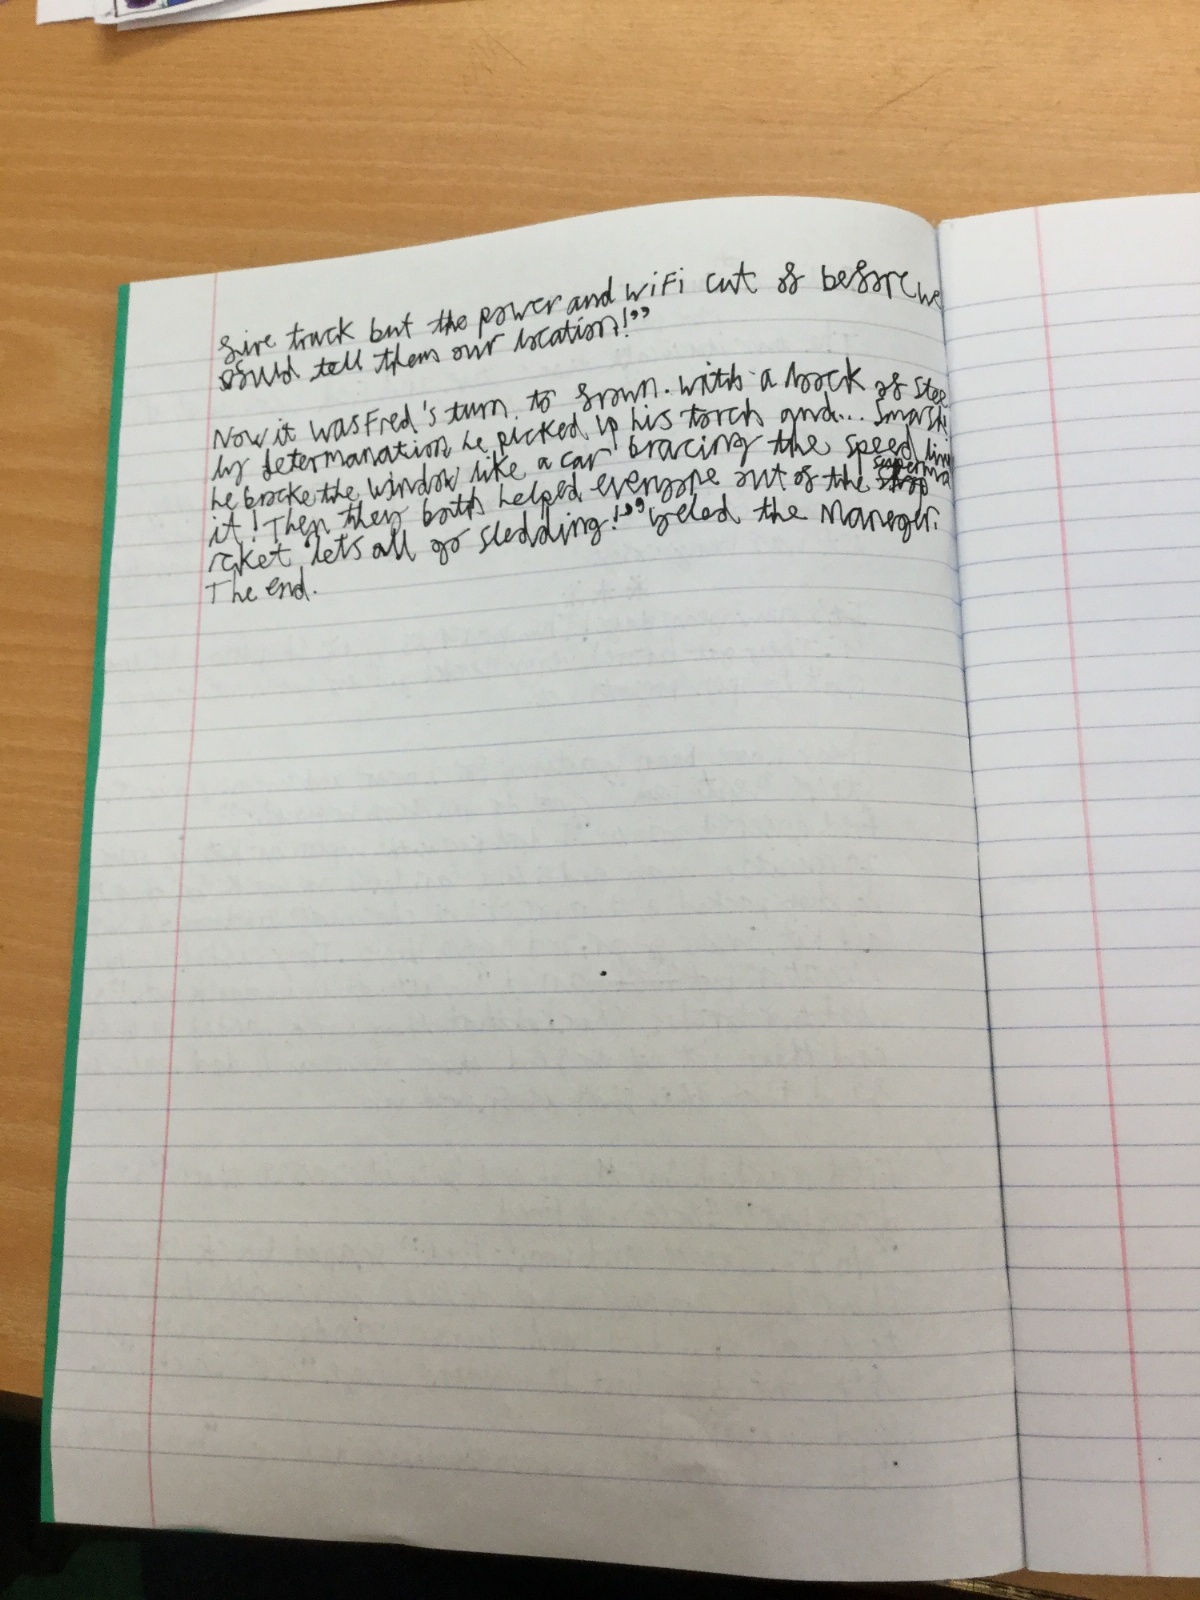 fire truck but the power and wiFi cut of before we
could tell them our location!"
Now it was Fred's turn to frown. with a look of stee
ly determanation he picked up his torch and... Smash!
he brocke the window like a car bracing the speed lim
it! Then they both helped everyone out of the superma
rcket "lets all go sledding!" yeled the Maneger.
The end.